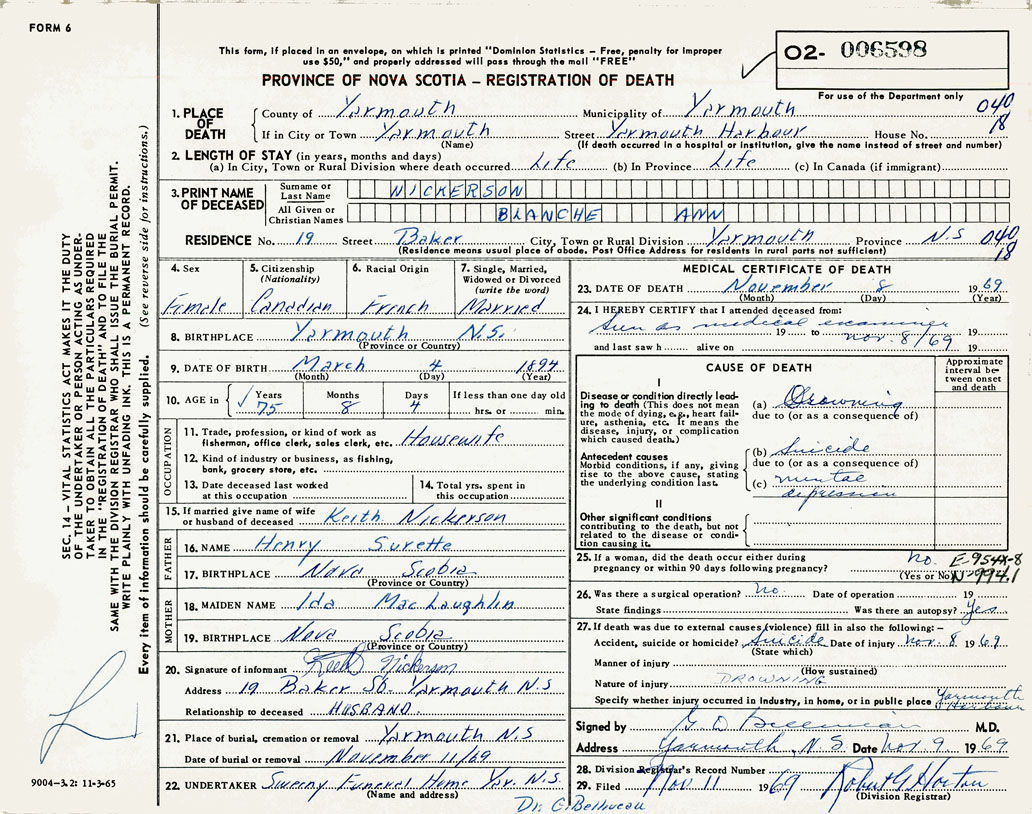 FORM 6
This form, if placed in an envelope, on which is printed "Dominion Statistics – Free, penalty for improper
use $50," and properly addressed will pass through the mail "FREE"
PROVINCE OF NOVA SCOTIA – REGISTRATION OF DEATH
O2- 006598
For use of the Department only
040
18
1. PLACE OF DEATH
County of Yarmouth Municipality of Yarmouth
If in City or Town Yarmouth Street Yarmouth Harbour House No.
(Name) (If death occurred in a hospital or institution, give the name instead of street and number)
2. LENGTH OF STAY (in years, months and days)
(a) In City, Town or Rural Division where death occurred Life (b) In Province Life (c) In Canada (if immigrant)
3. PRINT NAME OF DECEASED
Surname or Last Name NICKERSON
All Given or Christian Names BLANCHE ANN
RESIDENCE No. 19 Street Baker City, Town or Rural Division Yarmouth Province N.S 040
18
(Residence means usual place of abode. Post Office Address for residents in rural parts not sufficient)
4. Sex
Female
5. Citizenship (Nationality)
Canadian
6. Racial Origin
French
7. Single, Married, Widowed or Divorced (write the word)
Married
8. BIRTHPLACE Yarmouth N.S.
(Province or Country)
9. DATE OF BIRTH March 4 1894
(Month) (Day) (Year)
10. AGE in Years Months Days If less than one day old
75 8 4 hrs. or min.
OCCUPATION
11. Trade, profession, or kind of work as
fisherman, office clerk, sales clerk, etc. Housewife
12. Kind of industry or business, as fishing,
bank, grocery store, etc.
13. Date deceased last worked
at this occupation
14. Total yrs. spent in
this occupation
15. If married give name of wife
or husband of deceased Keith Nickerson
FATHER
16. NAME Henry Surette
17. BIRTHPLACE Nova Scotia
(Province or Country)
MOTHER
18. MAIDEN NAME Ida MacLaughlin
19. BIRTHPLACE Nova Scotia
(Province or Country)
20. Signature of informant Keith Nickerson
Address 19 Baker St. Yarmouth N.S
Relationship to deceased HUSBAND.
21. Place of burial, cremation or removal Yarmouth N.S
Date of burial or removal November 11/69
22. UNDERTAKER Sweeny Funeral Home Yar. N.S.
(Name and address)
MEDICAL CERTIFICATE OF DEATH
23. DATE OF DEATH November 8 1969
(Month) (Day) (Year)
24. I HEREBY CERTIFY that I attended deceased from:
Seen as medical examiner
19 to Nov. 8/69 19
and last saw h alive on 19
CAUSE OF DEATH
Approximate interval between onset and death
I
Disease or condition directly leading to death (This does not
mean the mode of dying, e.g., heart failure, asthenia, etc. It means the
disease, injury, or complication which caused death.)
(a) Drowning
due to (or as a consequence of)
Antecedent causes
Morbid conditions, if any, giving
rise to the above cause, stating
the underlying condition last.
(b) Suicide
due to (or as a consequence of)
(c) mental
depression
II
Other significant conditions
contributing to the death, but not
related to the disease or condition causing it.
25. If a woman, did the death occur either during
pregnancy or within 90 days following pregnancy? No.
(Yes or No)
E-954X-8
N-994.1
26. Was there a surgical operation? no. Date of operation 19
State findings Was there an autopsy? Yes
27. If death was due to external causes (violence) fill in also the following:–
Accident, suicide or homicide? Suicide Date of injury Nov. 8 1969
(State which)
Manner of injury
(How sustained)
Nature of injury DROWNING
Specify whether injury occurred in industry, in home, or in public place Yarmouth Harbour
Signed by G D Belliveau M.D.
Address Yarmouth, N.S. Date Nov. 9 1969
28. Division Registrar's Record Number
29. Filed Nov 11 1969 Robert G Horton
(Division Registrar)
Dr. G. Belliveau
SEC. 14 – VITAL STATISTICS ACT MAKES IT THE DUTY
OF THE UNDERTAKER OR PERSON ACTING AS UNDER-
TAKER TO OBTAIN ALL THE PARTICULARS REQUIRED
IN THE "REGISTRATION OF DEATH" AND TO FILE THE
SAME WITH THE DIVISION REGISTRAR WHO SHALL ISSUE THE BURIAL PERMIT.
WRITE PLAINLY WITH UNFADING INK. THIS IS A PERMANENT RECORD.
Every item of information should be carefully supplied. (See reverse side for instructions.)
9004–3.2: 11-3-65